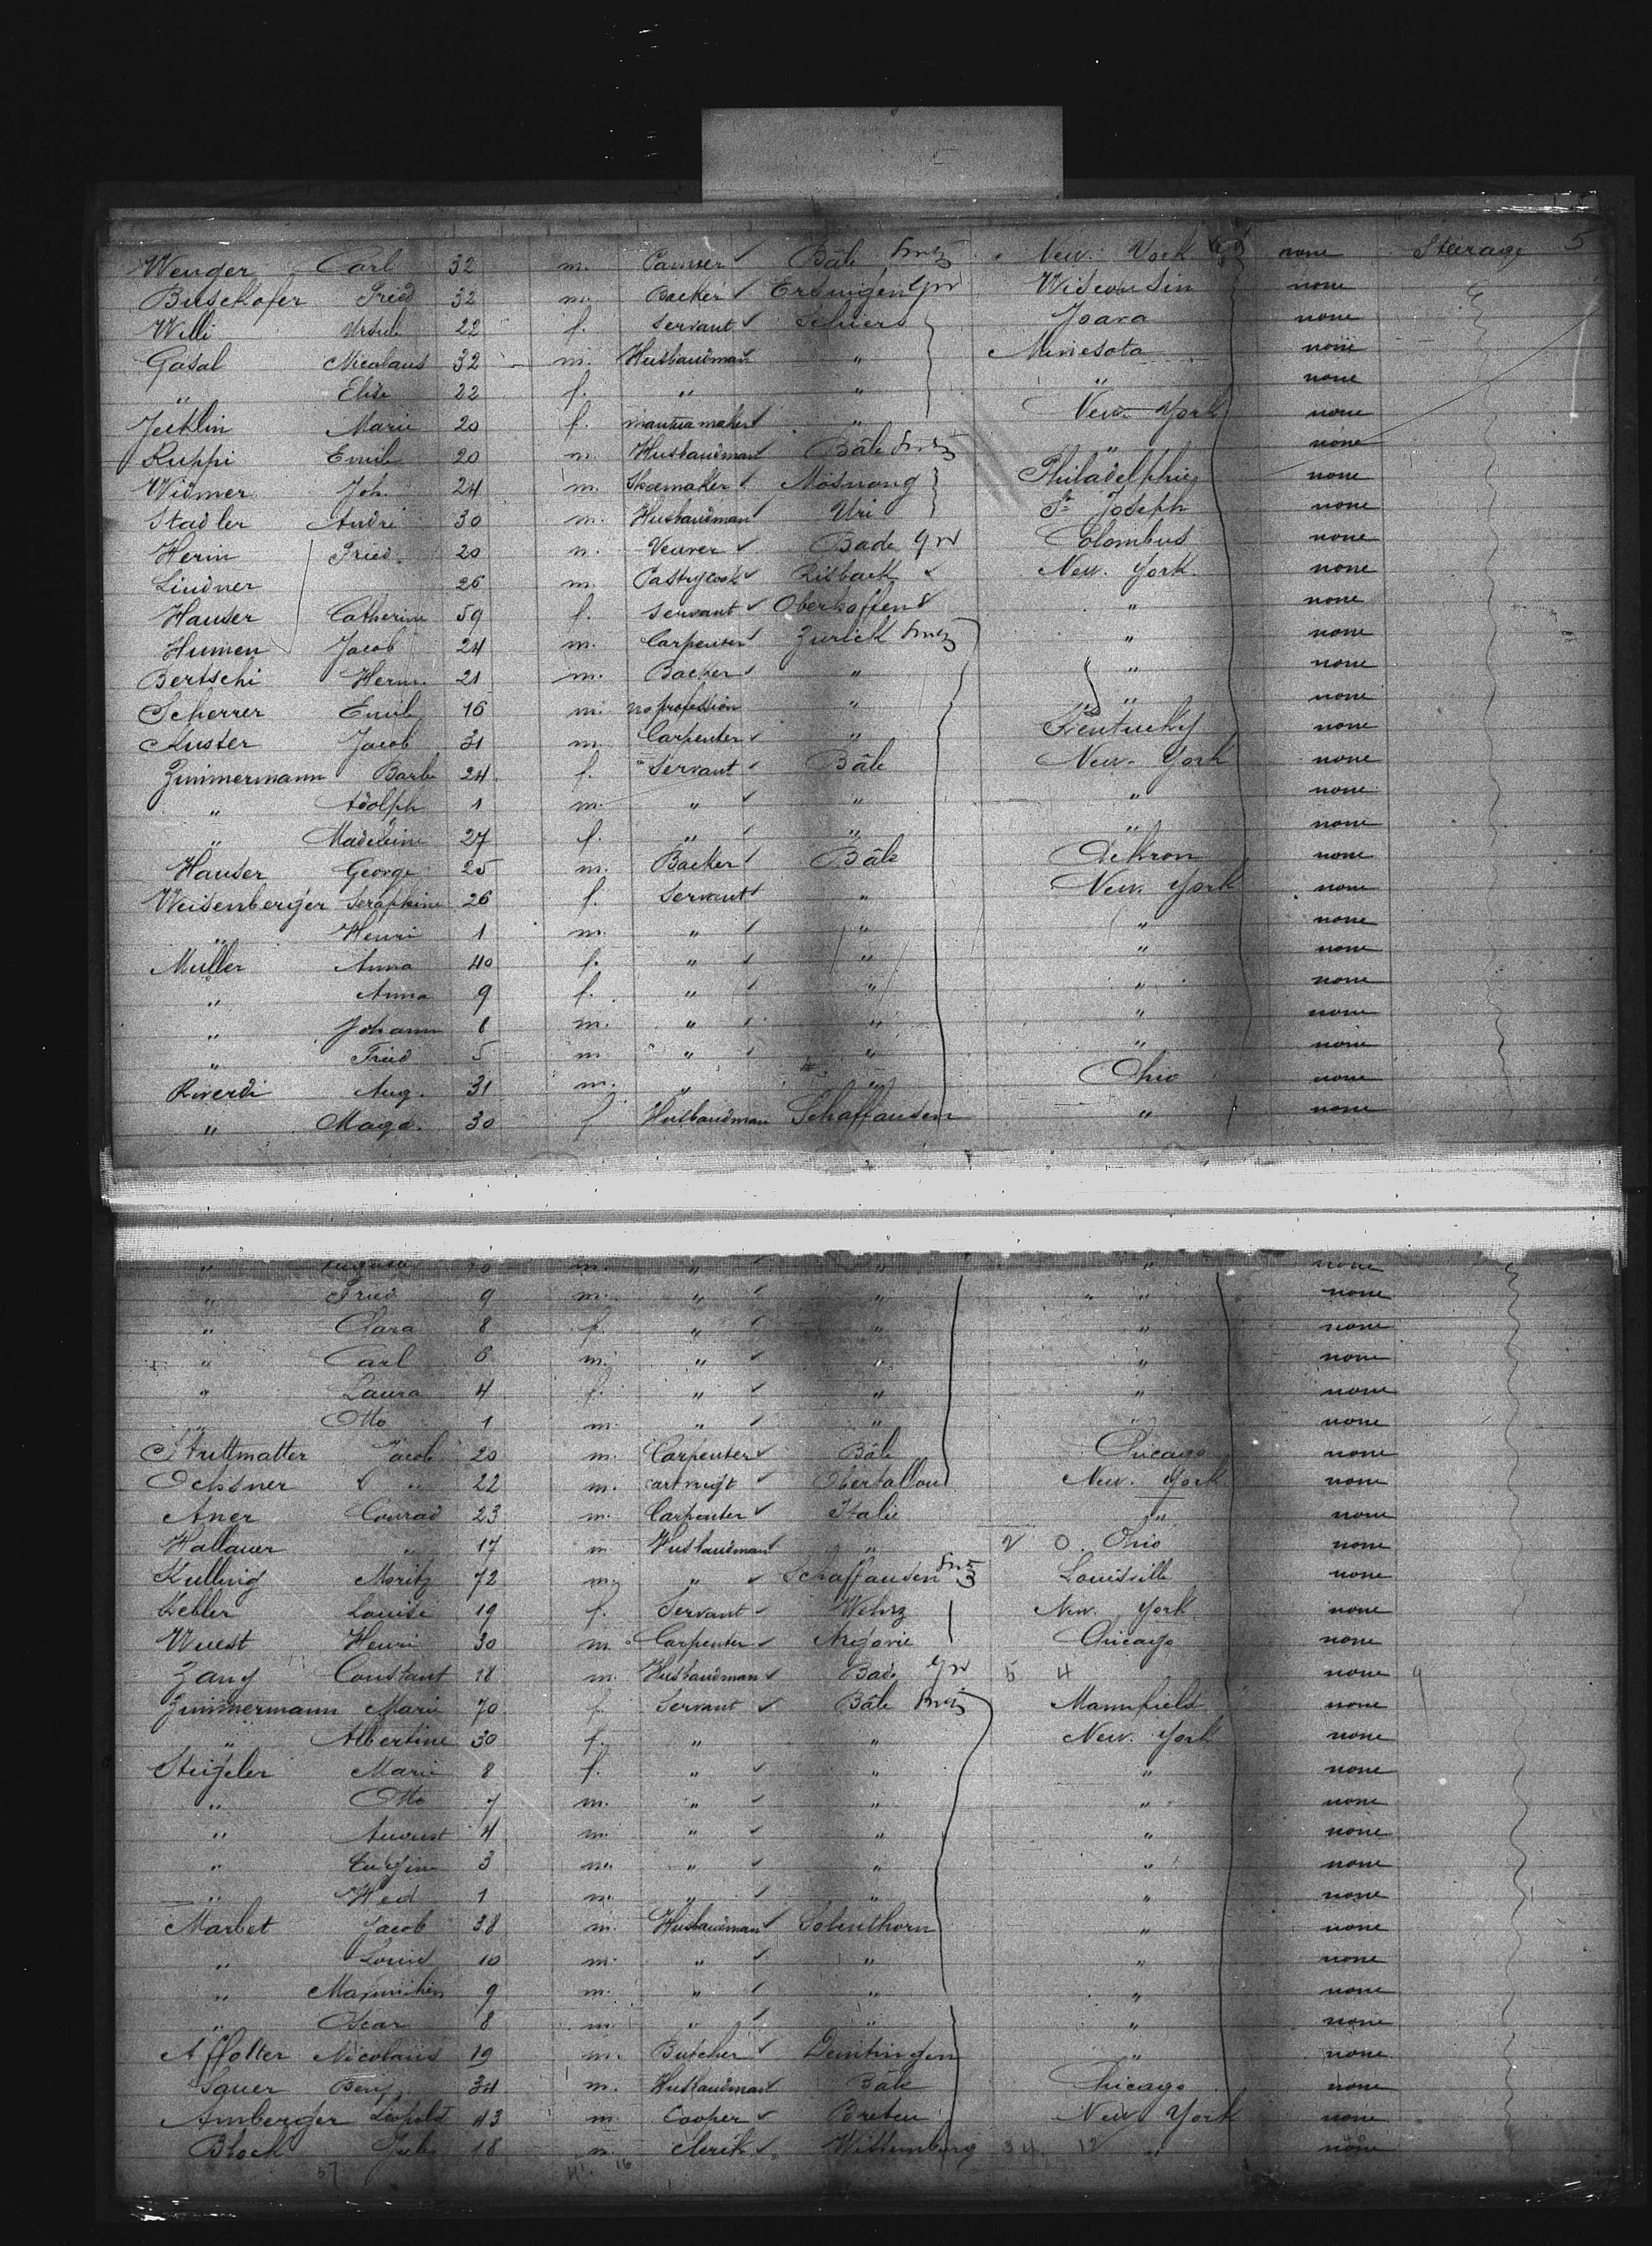 Wenger Carl 32 m. Bâle New. York none Stearage 5
Fried 32 m. Backer Ersingen Wisconsin none
Willi Ursule 22 f. Servant Schiers Joava none
Gasal Nicolaus 32 m. Husbandman " Minesota none
" Elise 22 f. " " " none
Jecklin Marie 20 f. mantua maker " New. York none
Ruppi Emile 20 m. Husbandman Bâle " none
Widmer Joh. 24 m. Shoemaker Mosnang Philadelphie none
Stadler André 30 m. Husbandman Uri St Joseph none
Herin Fried. 20 m. Bade Colombus none
Lindner 26 m. Pastrycook Risback New. York none
Hauser Catherine 59 f. servant Oberhoffen " none
Humen Jacob 24 m. Carpenter Zurick " none
Bertschi Herm. 21 m. Backer " " none
Scherrer Emile 16 m. no profession " " none
Kuster Jacob 31 m. Carpenter " Kentucky none
Zimmermann Barbe 24 f. Servant Bâle New. York none
" Adolph 1 m. " " " none
" Madeleine 27 f. " " " none
Hauser George 25 m. Backer Bâle none
Weisenberger Seraphine 26 f. Servant " New. York none
" Henri 1 m. " " " none
Muller Anna 40 f. " " " none
" Anna 9 f. " " " none
" Johann 8 m. " " " none
" Fried 5 m " " " none
Aug. 31 m. " " Ohio none
" Magd. 30 f Husbandman Schaffausen " none
" m. " " " none
" Fried 9 m. " " " " none
" Clara 8 f. " " " none
" Carl 6 m. " " " none
" Laura 4 f. " " " none
" Otto 1 m. " " " none
Struttmatter Jacob 20 m. Carpenter Bâle Chicago none
Ochsner " 22 m. New. York none
Aner Conrad 23 m. Carpenter Italie " none
Hallauer " 17 m Husbandman " O. Ohio none
Kulling Moritz 72 m. " Schaffausen Louisville none
Kebler Louise 19 f. Servant New. York none
Wuest Henri 30 m. Carpenter Argovie Chicago none
Zang Constant 18 m. Husbandman Bade 5 4 none
Zimmermann Marie 70 f. Servant Bâle Mannfield none
" Albertine 30 f. " " New. York none
Steigeler Marie 8 f. " " " none
" Otto 7 m. " " " none
" August 4 m. " " " none
" Eugène 3 m. " " " none
" 1 m. " " " none
Marbet Jacob 38 m. Husbandman Solenthorn " none
" Louis 10 m. " " " none
" Maximilien 9 m. " " " none
" Oscar 8 m. " " " none
Affolter Nicolaus 19 m. Butcher " none
Sauer Benj. 34 m. Husbandman Bâle Chicago none
Amberger Leopold 43 m. Cooper New York none
Bloch Jules 18 m. clerik Wittemberg 34 12 " none
57 41. 16